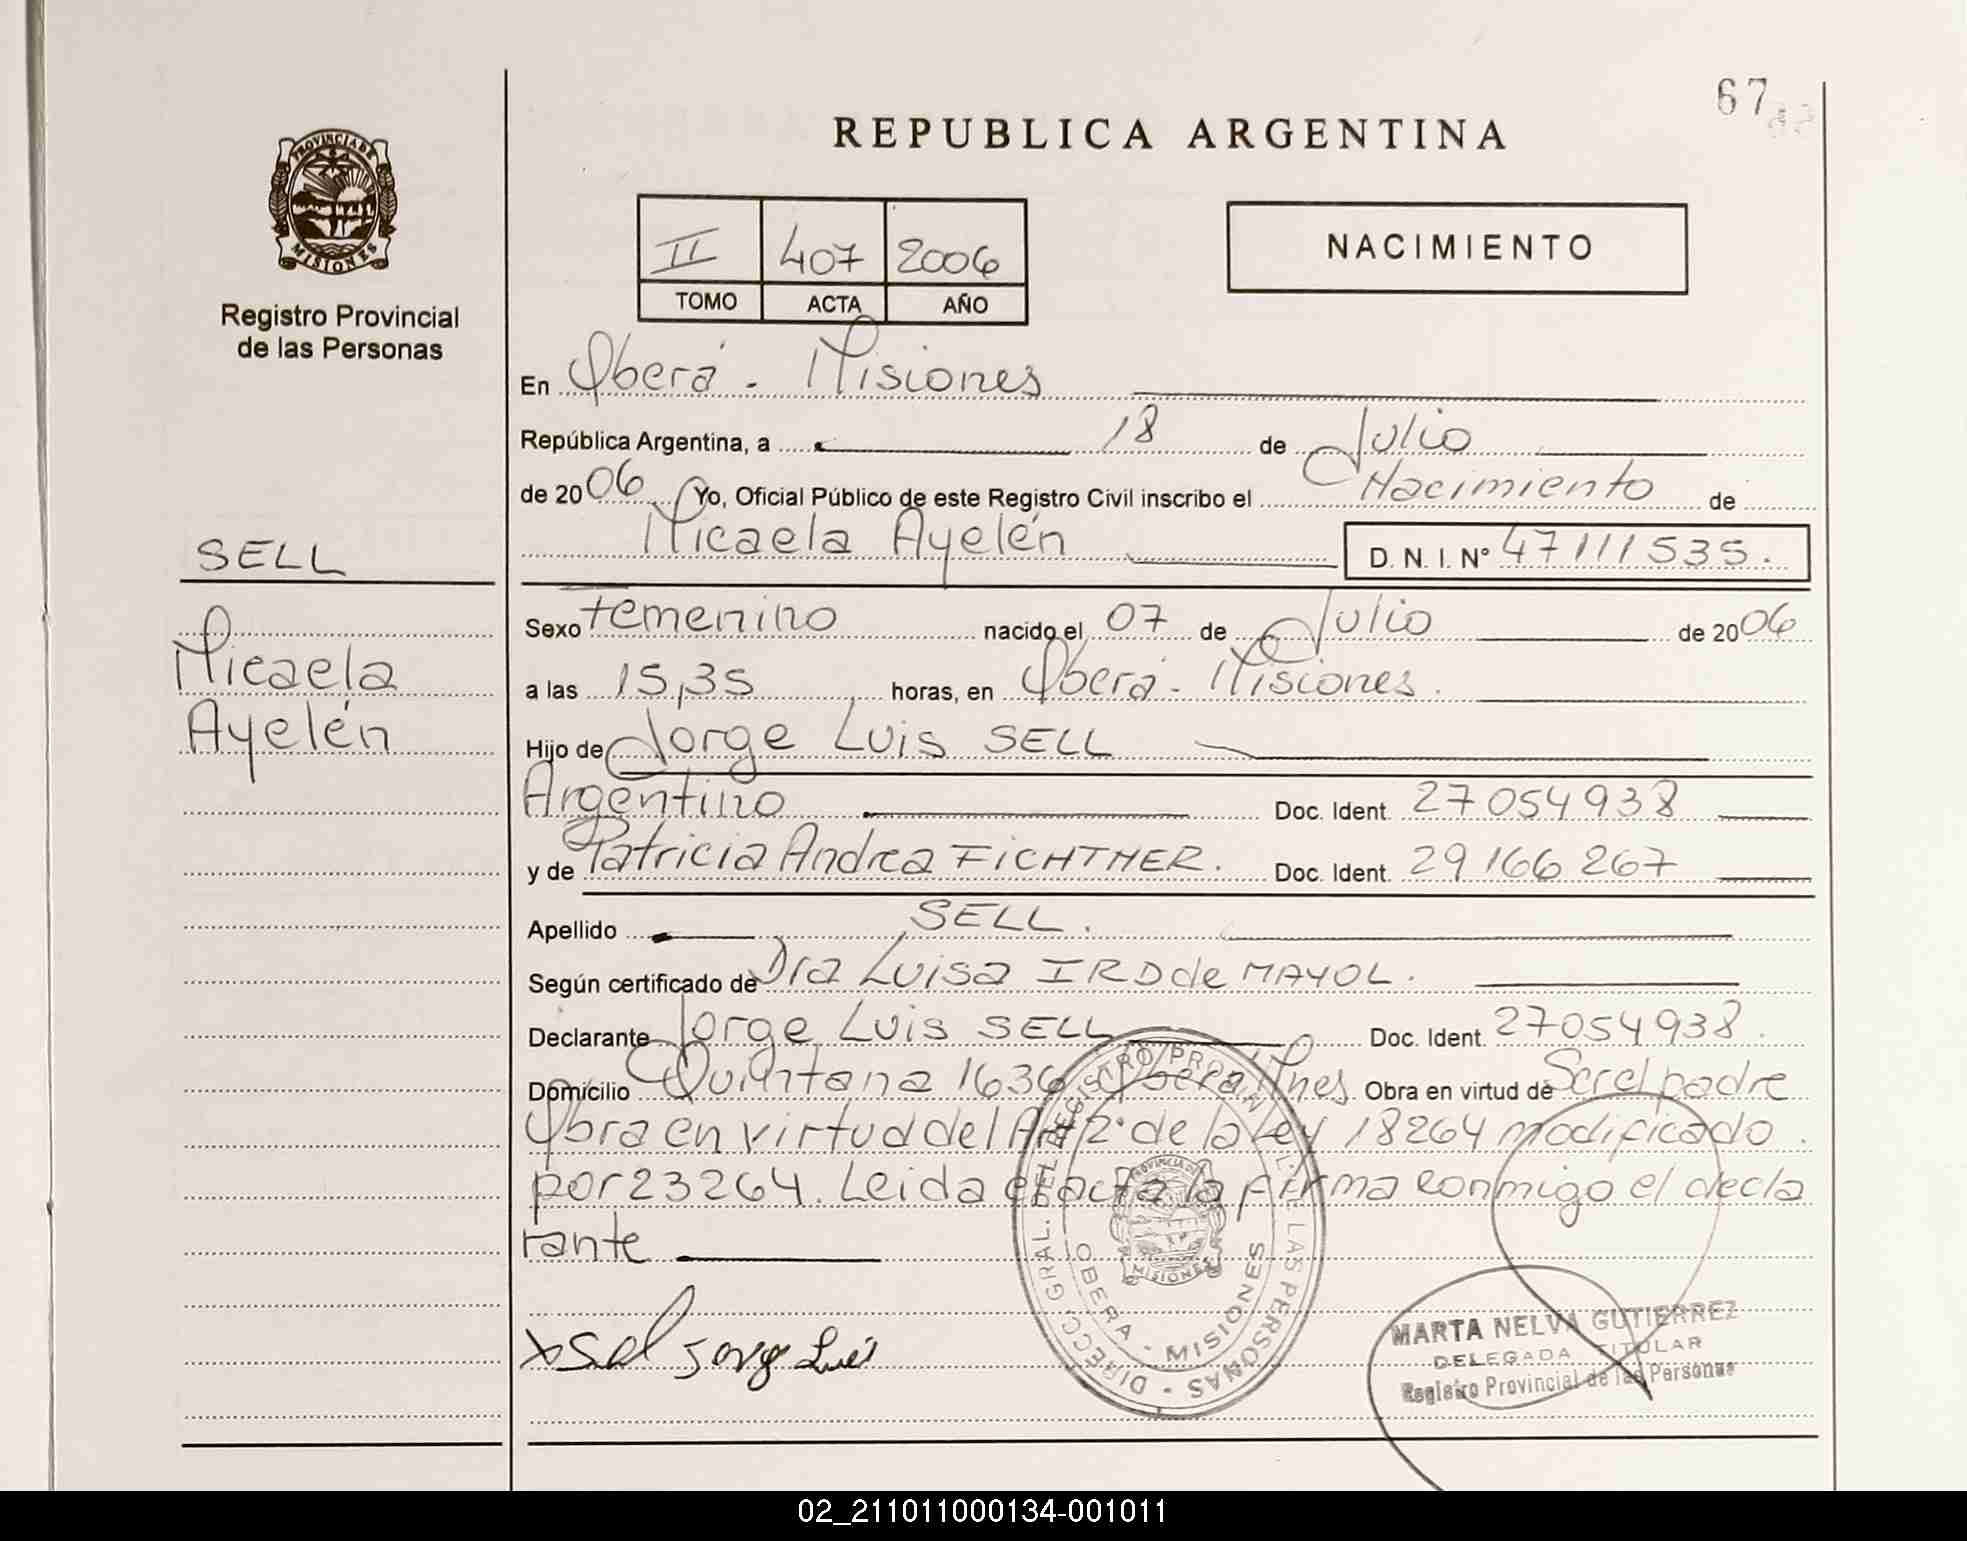 67
REPUBLICA ARGENTINA
PROVINCIA DE
MISIONES
Registro Provincial
de las Personas
II 407 2006
TOMO ACTA AÑO
NACIMIENTO
En Oberá - Misiones
República Argentina, a 18 de Julio
de 2006 Yo, Oficial Público de este Registro Civil inscribo el Nacimiento de
Micaela Ayelén D. N. I. N° 47111535.
SELL
Micaela
Ayelén
Sexo Femenino nacido el 07 de Julio de 2006
a las 15,35 horas, en Oberá - Misiones.
Hijo de Jorge Luis SELL
Argentino Doc. Ident. 27054938
y de Patricia Andrea FICHTNER. Doc. Ident. 29166267
Apellido SELL.
Según certificado de Dra Luisa IRD de MAYOL.
Declarante Jorge Luis SELL Doc. Ident. 27054938.
Domicilio Quintana 1636 Oberá Mnes Obra en virtud de Ser el padre
Obra en virtud del Art 2° de la Ley 18264 modificado.
por 23264. Leida el acta la firma conmigo el decla
rante
Sel Jorge Luis
DIRECC. GRAL. DEL REGISTRO PROVIN. DE LAS PERSONAS
PROVINCIA DE
MISIONES
OBERA - MISIONES
MARTA NELVA GUTIERREZ
DELEGADA TITULAR
Registro Provincial de las Personas
02_211011000134-001011